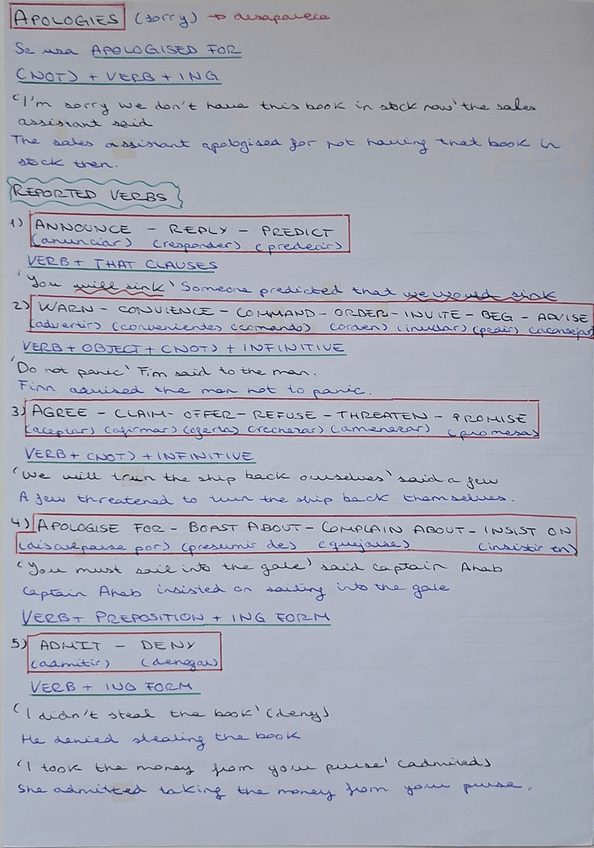 APOLOGIES (sorry) → desaparece
Se usa APOLOGISED FOR
(NOT) + VERB + ING
'I'm sorry we don't have this book in stock now' the sales
assistant said
The sales assistant apologised for not having that book in
stock then.
REPORTED VERBS
1) ANNOUNCE - REPLY - PREDICT
(anunciar) (responder) (predecir)
VERB + THAT CLAUSES
'You will sink' Someone predicted that we would sink
2) WARN - CONVIENCE - COMMAND - ORDER - INVITE - BEG - ADVISE
(advertir) (convenientes) (comando) (orden) (invitar) (pedir) (aconsejar)
VERB + OBJECT + (NOT) + INFINITIVE
'Do not panic' Finn said to the man.
Finn adviced the man not to panic.
3) AGREE - CLAIM - OFFER - REFUSE - THREATEN - PROMISE
(aceptar) (afirmar) (oferta) (rechazar) (amenezar) (promesa)
VERB + (NOT) + INFINITIVE
'We will turn the ship back ourselves' said a few
A few threatened to turn the ship back themselves.
4) APOLOGISE FOR - BOAST ABOUT - COMPLAIN ABOUT - INSIST ON
(disculparse por) (presumir de) (quejarse) (insistir en)
'You must sail into the gale' said captain Ahab
Captain Ahab insisted on sailing into the gale
VERB + PREPOSITION + ING FORM
5) ADMIT - DENY
(admitir) (denegar)
VERB + ING FORM
'I didn't steal the book' (deny)
He denied stealing the book
'I took the money from your purse' (admired)
She admitted taking the money from your purse.